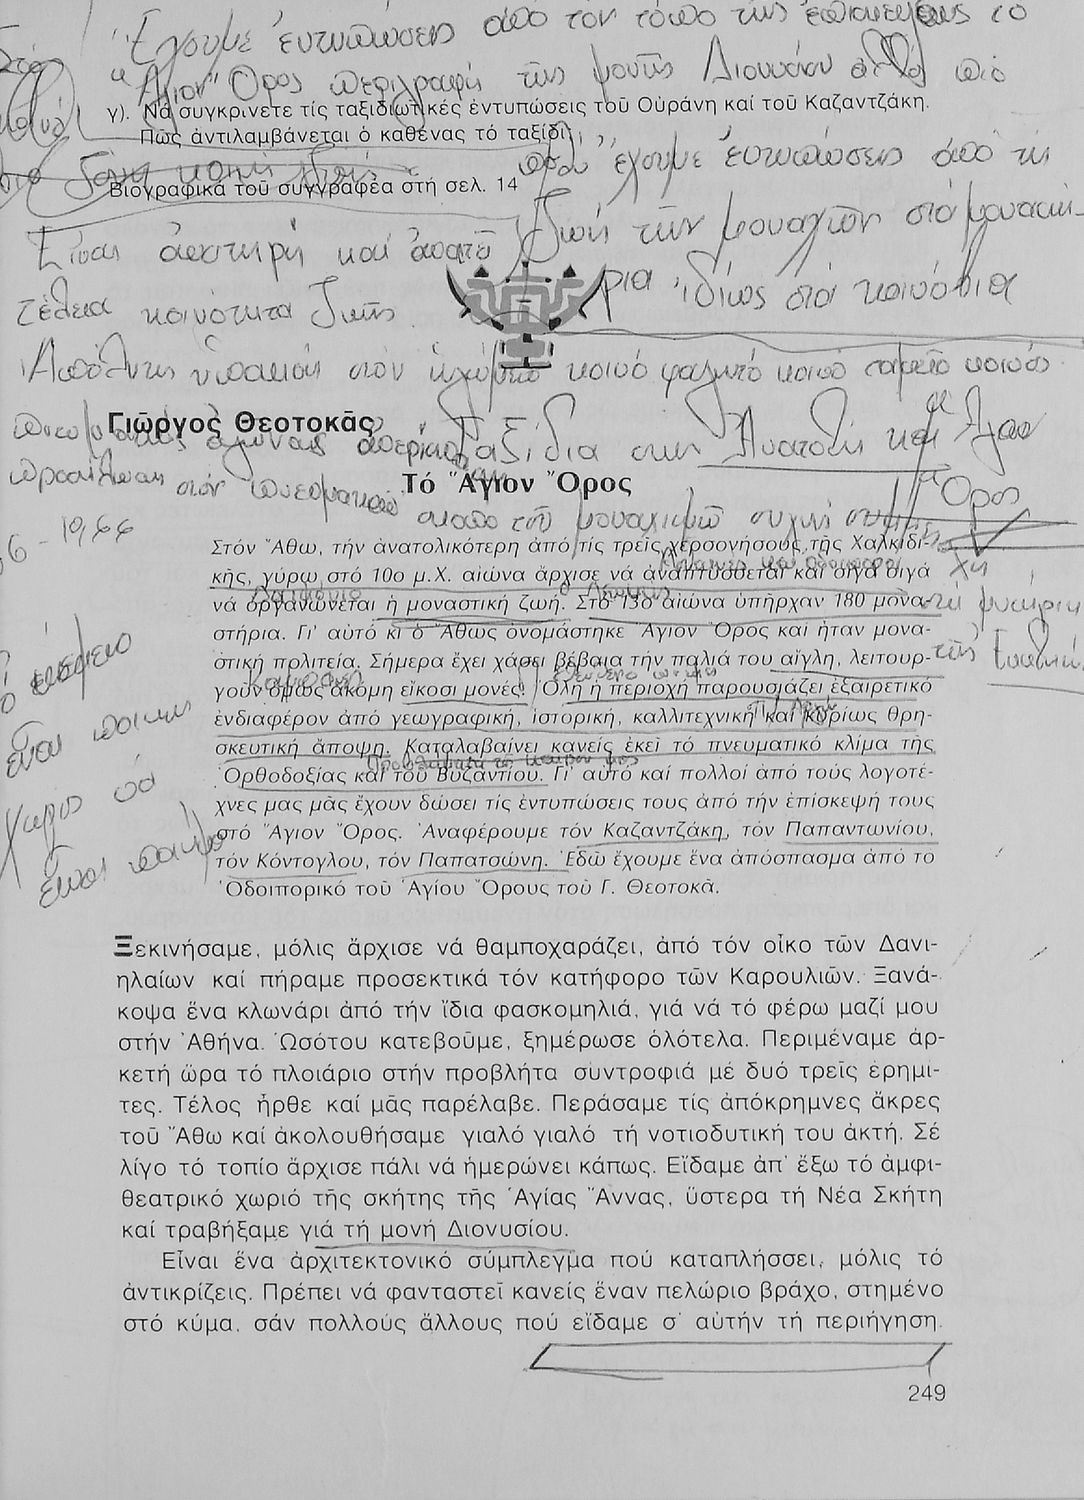 Ἔχουμε ἐντυπώσεις ἀπό τόν τόπο τῆς ἐπισκέψεως τό
"Ἅγιον" Ὄρος περιγραφή τῆς μονῆς Διονυσίου
γ). Νά συγκρίνετε τίς ταξιδιωτικές ἐντυπώσεις τοῦ Οὐράνη καί τοῦ Καζαντζάκη.
Πῶς ἀντιλαμβάνεται ὁ καθένας τό ταξίδι;
ἔχουμε ἐντυπώσεις ἀπό τή
Βιογραφικά τοῦ συγγραφέα στή σελ. 14
ζωή τῶν μοναχῶν στά μοναστή-
Εἶναι αὐστηρή καί
ρια ἰδίως στά κοινόβια
τέλεια κοινότητα ζωῆς
κοινό φαγητό κοινό ταμεῖο κοινός
Γιῶργος Θεοτοκᾶς
Ταξίδια στήν Ἀνατολή καί Ἅγιον
Ὄρος
Τό Ἅγιον Ὄρος
Στόν Ἄθω, τήν ἀνατολικότερη ἀπό τίς τρεῖς χερσονήσους τῆς Χαλκιδι-
κῆς, γύρω στό 10ο μ.Χ. αἰώνα ἄρχισε νά ἀναπτύσσεται καί σιγά σιγά
νά ὀργανώνεται ἡ μοναστική ζωή. Στό 13ο αἰώνα ὑπῆρχαν 180 μονα-
στήρια. Γι' αὐτό κι ὁ Ἄθως ὀνομάστηκε Ἅγιον Ὄρος καί ἦταν μονα-
στική πολιτεία. Σήμερα ἔχει χάσει βέβαια τήν παλιά του αἴγλη, λειτουρ-
γοῦν ὅμως ἀκόμη εἴκοσι μονές. Ὅλη ἡ περιοχή παρουσιάζει ἐξαιρετικό
ἐνδιαφέρον ἀπό γεωγραφική, ἱστορική, καλλιτεχνική καί κυρίως θρη-
σκευτική ἄποψη. Καταλαβαίνει κανείς ἐκεῖ τό πνευματικό κλίμα τῆς
Ὀρθοδοξίας καί τοῦ Βυζαντίου. Γι' αὐτό καί πολλοί ἀπό τούς λογοτέ-
χνες μας μᾶς ἔχουν δώσει τίς ἐντυπώσεις τους ἀπό τήν ἐπίσκεψή τους
στό Ἅγιον Ὄρος. Ἀναφέρουμε τόν Καζαντζάκη, τόν Παπαντωνίου,
τόν Κόντογλου, τόν Παπατσώνη. Ἐδῶ ἔχουμε ἕνα ἀπόσπασμα ἀπό τό
Ὁδοιπορικό τοῦ Ἁγίου Ὄρους τοῦ Γ. Θεοτοκᾶ.
Ξεκινήσαμε, μόλις ἄρχισε νά θαμποχαράζει, ἀπό τόν οἶκο τῶν Δανι-
ηλαίων καί πήραμε προσεκτικά τόν κατήφορο τῶν Καρουλιῶν. Ξανά-
κοψα ἕνα κλωνάρι ἀπό τήν ἴδια φασκομηλιά, γιά νά τό φέρω μαζί μου
στήν Ἀθήνα. Ὡσότου κατεβοῦμε, ξημέρωσε ὁλότελα. Περιμέναμε ἀρ-
κετή ὥρα τό πλοιάριο στήν προβλήτα συντροφιά μέ δυό τρεῖς ἐρημί-
τες. Τέλος ἦρθε καί μᾶς παρέλαβε. Περάσαμε τίς ἀπόκρημνες ἄκρες
τοῦ Ἄθω καί ἀκολουθήσαμε γιαλό γιαλό τή νοτιοδυτική του ἀκτή. Σέ
λίγο τό τοπίο ἄρχισε πάλι νά ἡμερώνει κάπως. Εἴδαμε ἀπ' ἔξω τό ἀμφι-
θεατρικό χωριό τῆς σκήτης τῆς Ἁγίας Ἄννας, ὕστερα τή Νέα Σκήτη
καί τραβήξαμε γιά τή μονή Διονυσίου.
Εἶναι ἕνα ἀρχιτεκτονικό σύμπλεγμα πού καταπλήσσει, μόλις τό
ἀντικρίζεις. Πρέπει νά φανταστεῖ κανείς ἕναν πελώριο βράχο, στημένο
στό κύμα, σάν πολλούς ἄλλους πού εἴδαμε σ' αὐτήν τή περιήγηση.
249